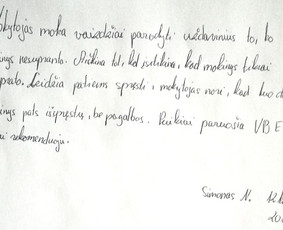 okytojas moka vaizdžiai parodyti uždavinius to, ko
inys nesupranta. Aiškina tol, kol įsitikina, kad mokinys tikrai
prato. Leidžia patiems spręsti, mokytojas nori, kad kuo d
inys pats išspręstų, be pagalbos. Puikiai paruošia VBE
ai rekomenduoju.
Simonas N. 12
20